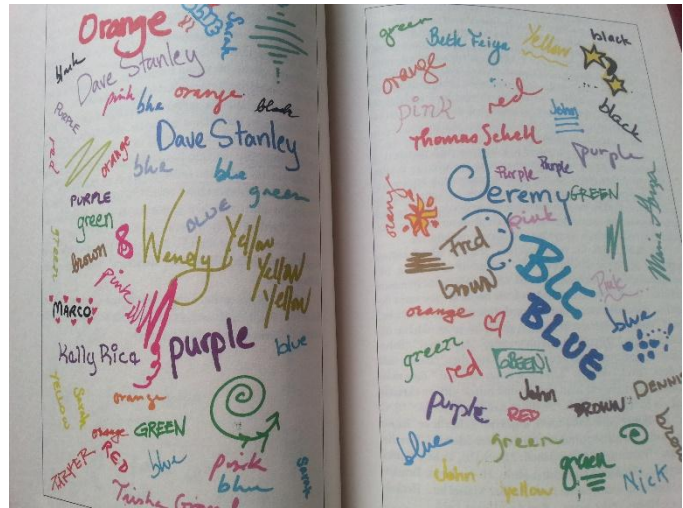 Orange
Sarah
black
Dave Stanley
pink
blue
orange
black
PURPLE
Dave Stanley
red
orange
blue
blue
PURPLE
green
BLUE
green
green
brown
8
Wendy
Yellow
Yellow
Yellow
pink
MARCO
Kelly Rice
purple
blue
YELLOW
Sarah
orange
orange
GREEN
RED
blue
pink
blue
Sarah
Trisha
green
Beth Feige
Yellow
black
orange
pink
red
John
black
Thomas Schell
purple
Purple
Purple
Jeremy
GREEN
orange
pink
Fred
BLC
BLUE
brown
Pink
orange
blue
green
red
GREEN
John
DENNIS
Purple
RED
BROWN
brown
blue
green
John
yellow
green
Nick